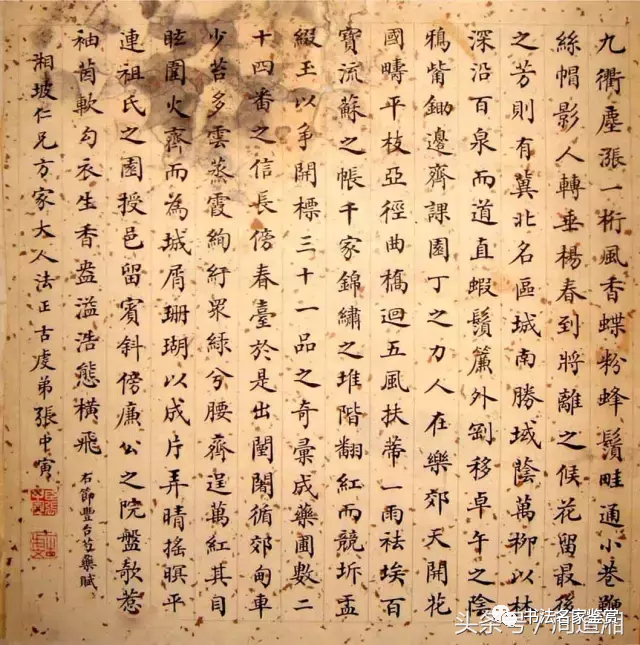 九衢塵漲一桁風香蝶粉蜂鬚畦通小巷鞭
絲帽影人轉垂楊春到將離之候花留最後
之芳則有冀北名區城南勝域陰萬柳以林
深沿百泉而道直蝦鬚簾外劉移卓午之陰
鴉觜鋤邊齊課園丁之力人在樂郊天開花
國疇平枝亞徑曲橋迴五風扶蔕一雨祛埃百
寶流蘇之帳千家錦繡之堆階翻紅而競坼盂
綴玉以爭開標三十一品之奇彙成藥圃數二
十四番之信長傍春臺於是出闉闍循郊甸車
少苔多雲蒸霞絢紆眾綠兮腰齊逞萬紅其目
眩圍火齊而為城屑珊瑚以成片弄晴搖暝平
連祖氏之園授邑留賓斜傍廉公之院盤敧惹
袖茵軟勾衣生香盎溢浩態橫飛
右節豐台芍藥賦
湘坡仁兄方家大人法正古虞弟張中寅
书法名家鉴赏
头条号